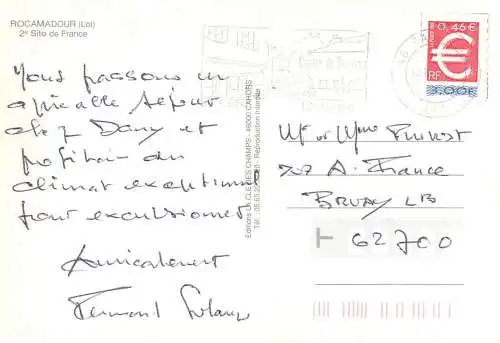 ROCAMADOUR (Lot)
2e Site de France
Nous passons un
agréable séjour
chez Dany et
profitons du
climat exceptionnel
pour excursionner
Amicalement
Fernand
Editions LA CLE DES CHAMPS - 46000 CAHORS
Tél. : 05.65. - Reproduction interdite
0,46 €
RF
3,00F
Mr et Mme
A. France
BRUAY
62700